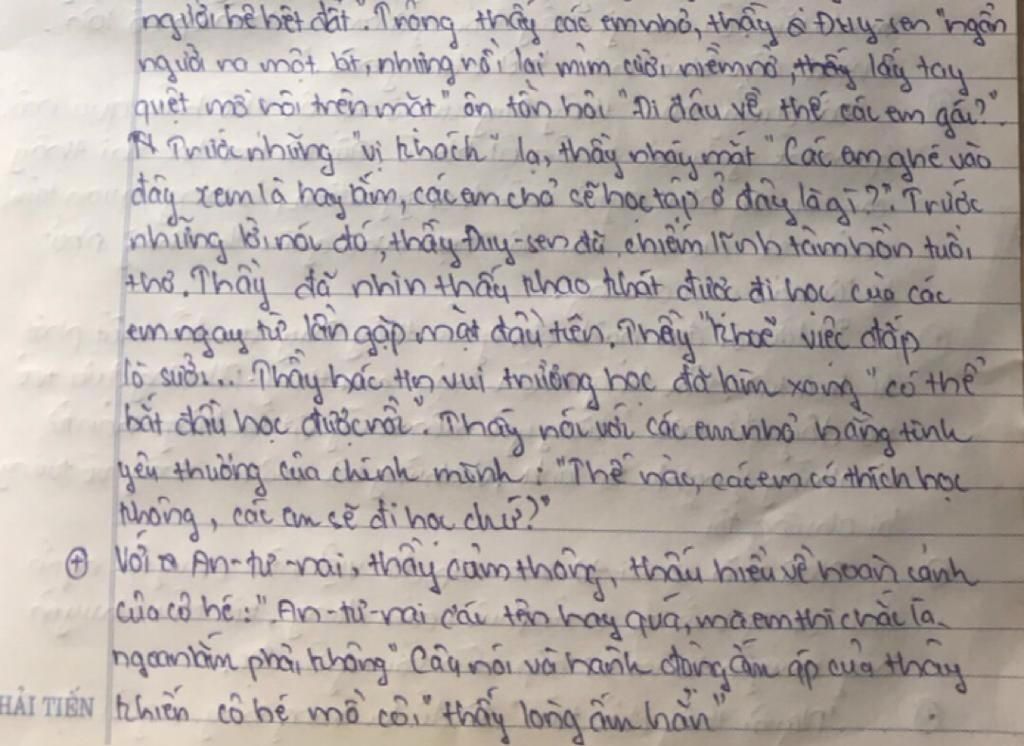 người bê bết đất". Trông thấy các em nhỏ, thầy Đuy-sen "ngẩn
người ra một lát, nhưng rồi lại mỉm cười niềm nở, thấy lấy tay
quệt mồ hôi trên mặt" ôn tồn hỏi "Đi đâu về thế các em gái?".
Trước những "vị khách" lạ, thầy nháy mắt "Các em ghé vào
đây xem là hay lắm, các em chả sẽ học tập ở đây là gì?". Trước
những lời nói đó, thầy Đuy-sen đã chiếm lĩnh tâm hồn tuổi
thơ. Thầy đã nhìn thấy khao khát được đi học của các
em ngay từ lần gặp mặt đầu tiên. Thầy "khoe" việc đắp
lò sưởi... Thầy bác tin vui trường học đã làm xong "có thể
bắt đầu học được rồi". Thầy nói với các em nhỏ bằng tình
yêu thương của chính mình : "Thế nào, các em có thích học
không, các em sẽ đi học chứ?"
+ Với An-tư-nai, thầy cảm thông, thấu hiểu về hoàn cảnh
của cô bé : "An-tư-nai cái tên hay quá, mà em thì chắc là
ngoan lắm phải không" Câu nói và hành động ấm áp của thầy
HẢI TIẾN khiến cô bé mồ côi "thấy lòng ấm hẳn"